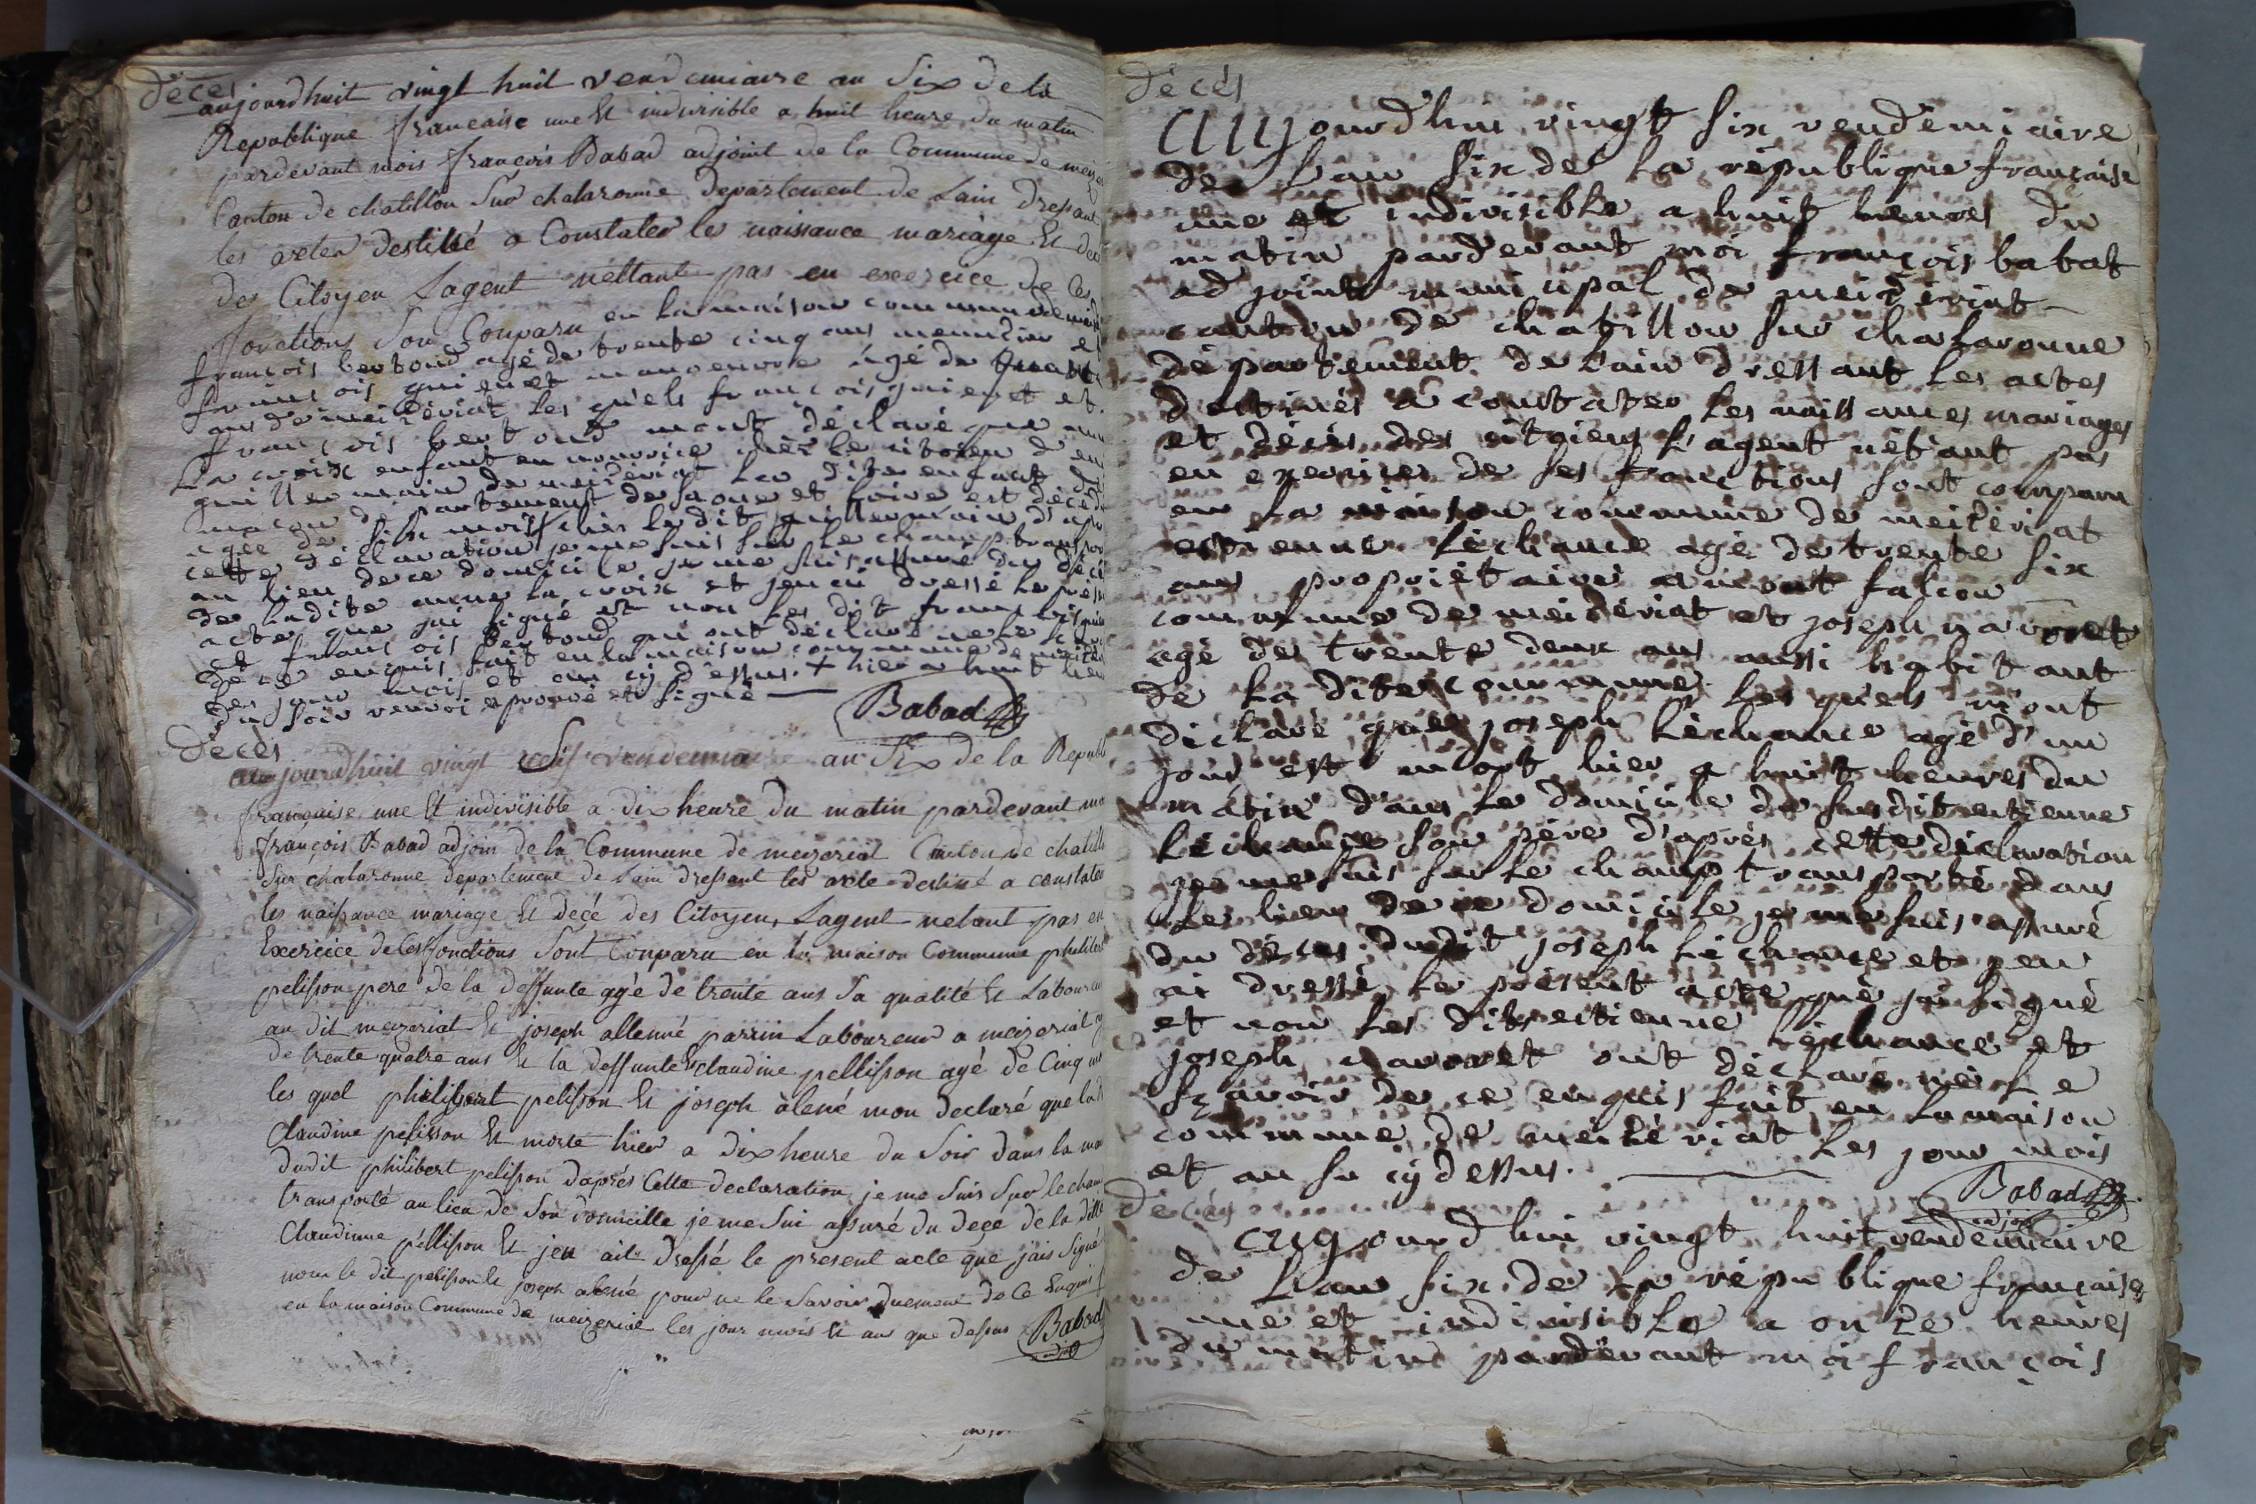 décés
aujourdhuit vingt huit vendemiaire an Six de la
Republique francaise une Et indivisible a huit heure du matin
pardevant mois françois Babad adjoint de la Commune de
Canton de chatillon Sur chalaronne departement de Lain Dressant
les actes destiné a Constater le naissance mariage Et
des Citoyen Lagent nettant pas en exercice de Ces
fonctions Son Conparu en la maison commune
françois bertoud agé de trente cinq ans menuzier et
francois manoeuvre agé de
ans de meizériat les quels francois et
francois bertoud mont déclaré que
La croix enfant en nourice chez le citoien
guillermain de meizériat la dite enfant
macon département de saone et loire est décédé
agée de six mois chés le dit guillermain d'apr
cette déclaration je me suis sur le champ transpor
au lieu de ce domicile je me suis assuré du déc
de ladite la croix et jen ai dressé le prés
acte que jai signé et non les dit francois
et francois bertoud qui ont déclaré ne le
de ce enquis fait en la maison commune de meizé
les jour mois et an cy dessus. + hier a huit heu
du soir renvoi aprouvé et signé
Babad
décès
aujourdhuit vingt vendemiaire an Six de la Republi
française une Et indivisible a dix heure du matin pardevant mo
françois Babad adjoin de la Commune de meizeriat Canton de chatill
Sur chalaronne departement de Lain dressant les acte destiné a constater
les naissance mariage Et decé des Citoyen, Lagent netant pas en
Exercice de Ces fonctions Sont Conparu en la maison Commune philibert
pelisson pere de la deffunte agé de trente ans Sa qualité Et Laboureur
au dit meizeriat Et joseph allenné parrin Laboureur a meizeriat
de trente quatre ans Et la deffunte Claudine pellisson agé de Cinq
les quel philibert pelisson Et joseph àlené mon declaré que la
Claudine pelisson Et morte hier a dix heure du Soir dans la ma
dudit philibert pelisson daprés Cette declaration je me Suis Sur le cham
transporté au lieu de Son domicille je me Sui assuré du decé de la ditte
Claudinne péllisson Et jen ait dressé le present acte que jais Signé
non le dit pelisson Et joseph alené pour ne le Savoir duement de Ce Enquis f
en la maison Commune de meizeriat les jour mois Et ans que dessus Babad
décés
Aujourdhui vingt six vendémiaire
de l'an six de la république française
une et indivisible a huit heures du
matin pardevant moi françois babat
adjoint municipal de meizériat
canton de chatillon sur chalaronne
département de l'ain dressant les actes
destinés a constater les naissances mariages
et décès des citoiens l'agent nétant pas
en exercices de ses fonctions sont comparu
en la maison commune de meizériat
etienne léchance agé de trente six
ans propriétaire a mont falcon
commune de meizériat et joseph
agé de trente deux ans aussi habitant
de la dite commune les quels m'ont
déclaré que joseph léchance agé d'un
jour est mort hier a huit heures du
matin dans le domicile du susdit etienne
léchance son père d'aprés cette déclaration
je me suis sur le champ transporté dans
le lieu de ce domicile je me suis assuré
du décès dudit joseph léchance et jen
ai dressé le présent acte que jai signé
et non les dits etienne léchance et
joseph ont déclaré ne le
sçavoir de ce enquis fait en la maison
commune de meizériat les jour mois
et an su cy dessus.
Babad
adjoi
décés
aujourd'hui vingt huit vendémiaire
de l'an six de la république française
une et indivisible a onze heures
du matin pardevant moi françois